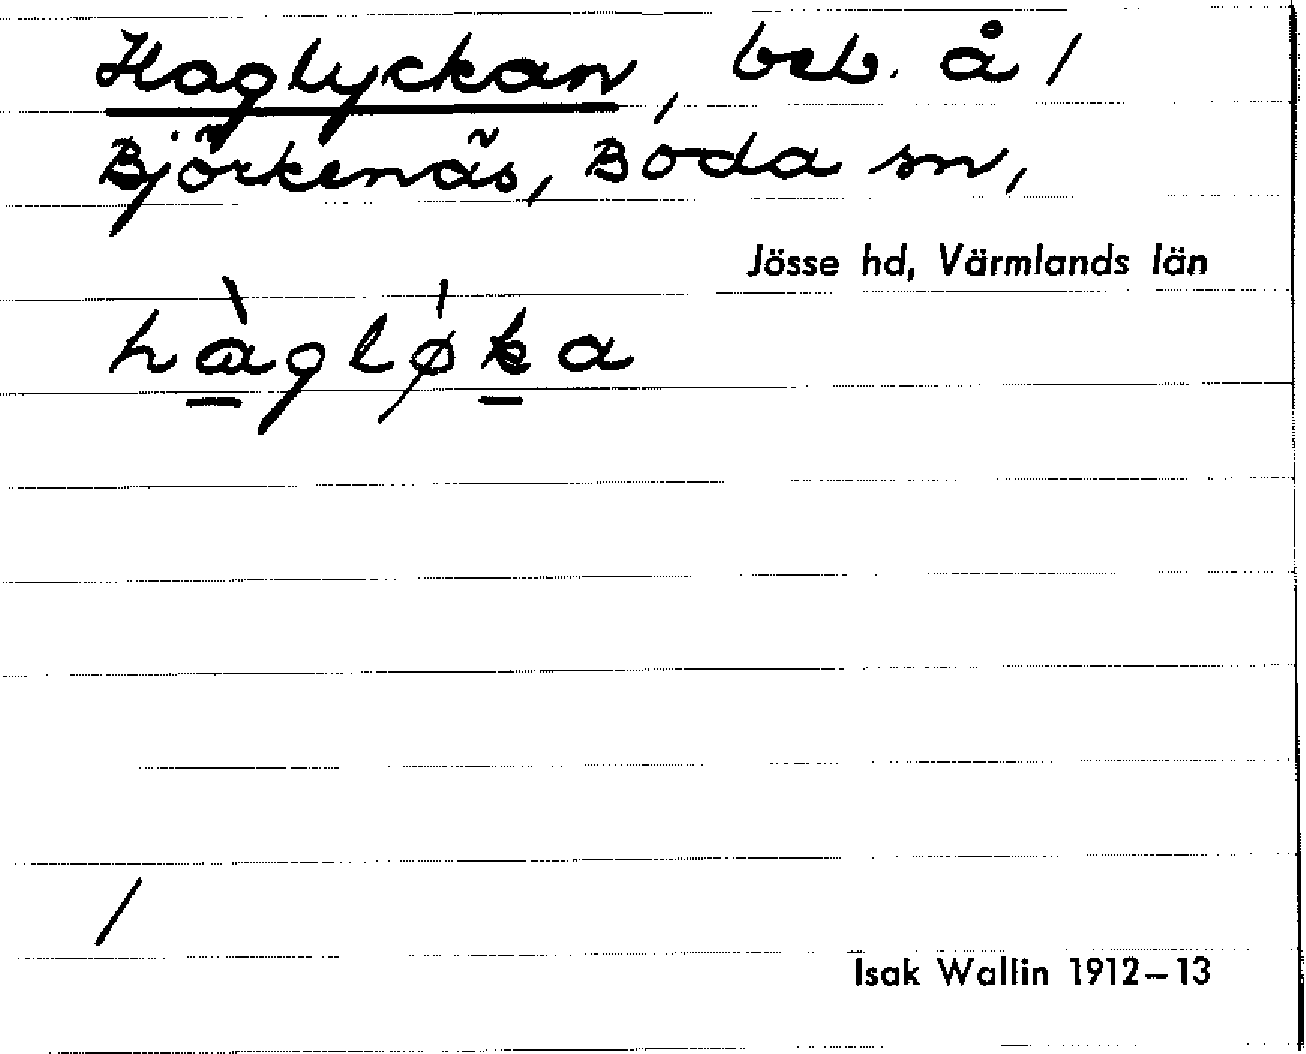 Haglyckan, beb. å /
Björkenäs, Boda sn,
Jösse hd, Värmlands län
hàgløka
/
Isak Wallin 1912–13